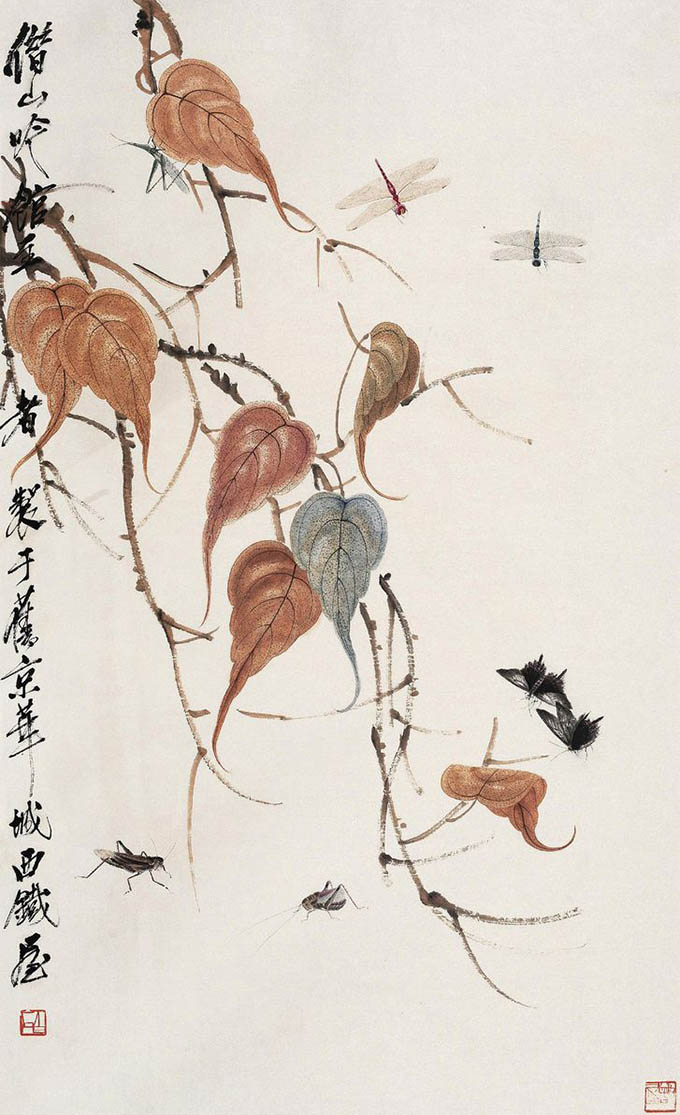 借山吟館主者製于舊京華城西鐵屋